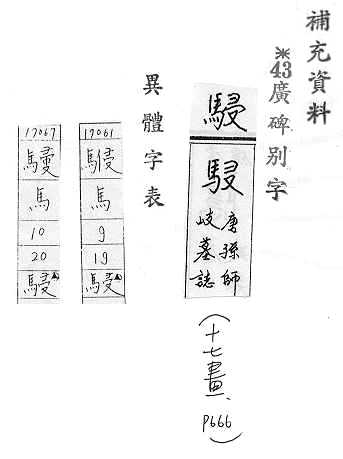 補充資料
※43廣碑別字
駸
唐孫師
岐墓誌
(十七畫、P666)
異體字表
17061
馬
9
19
駸
17067
馬
10
20
駸